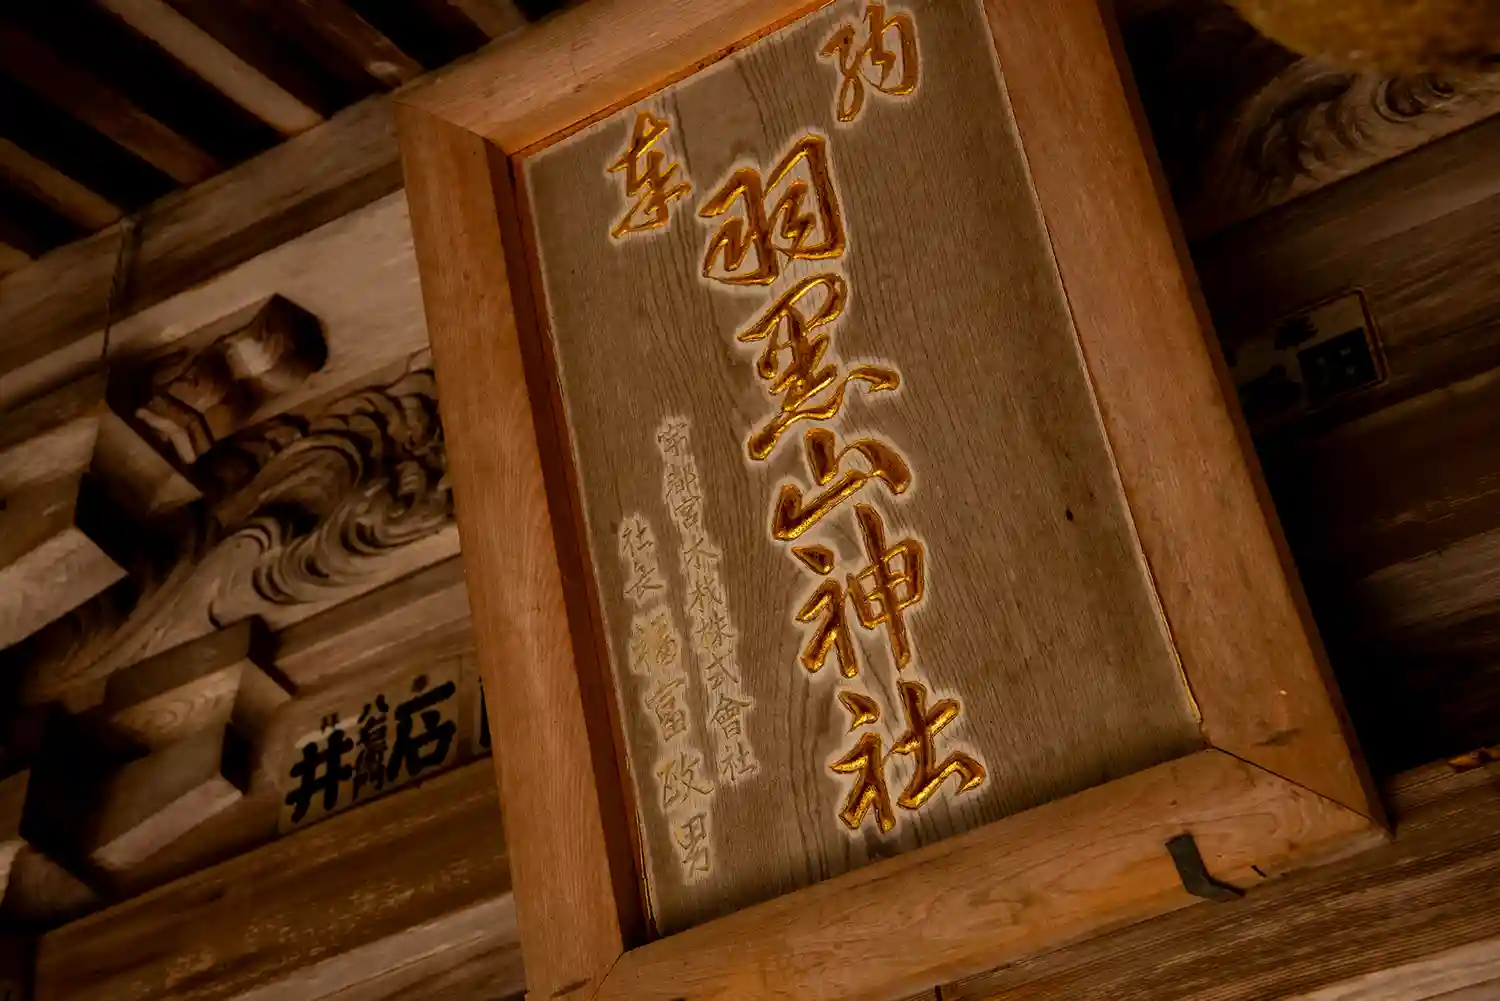 奉
納
羽黒山神社
宇都宮木材株式會社
社長 福富政男
井
店